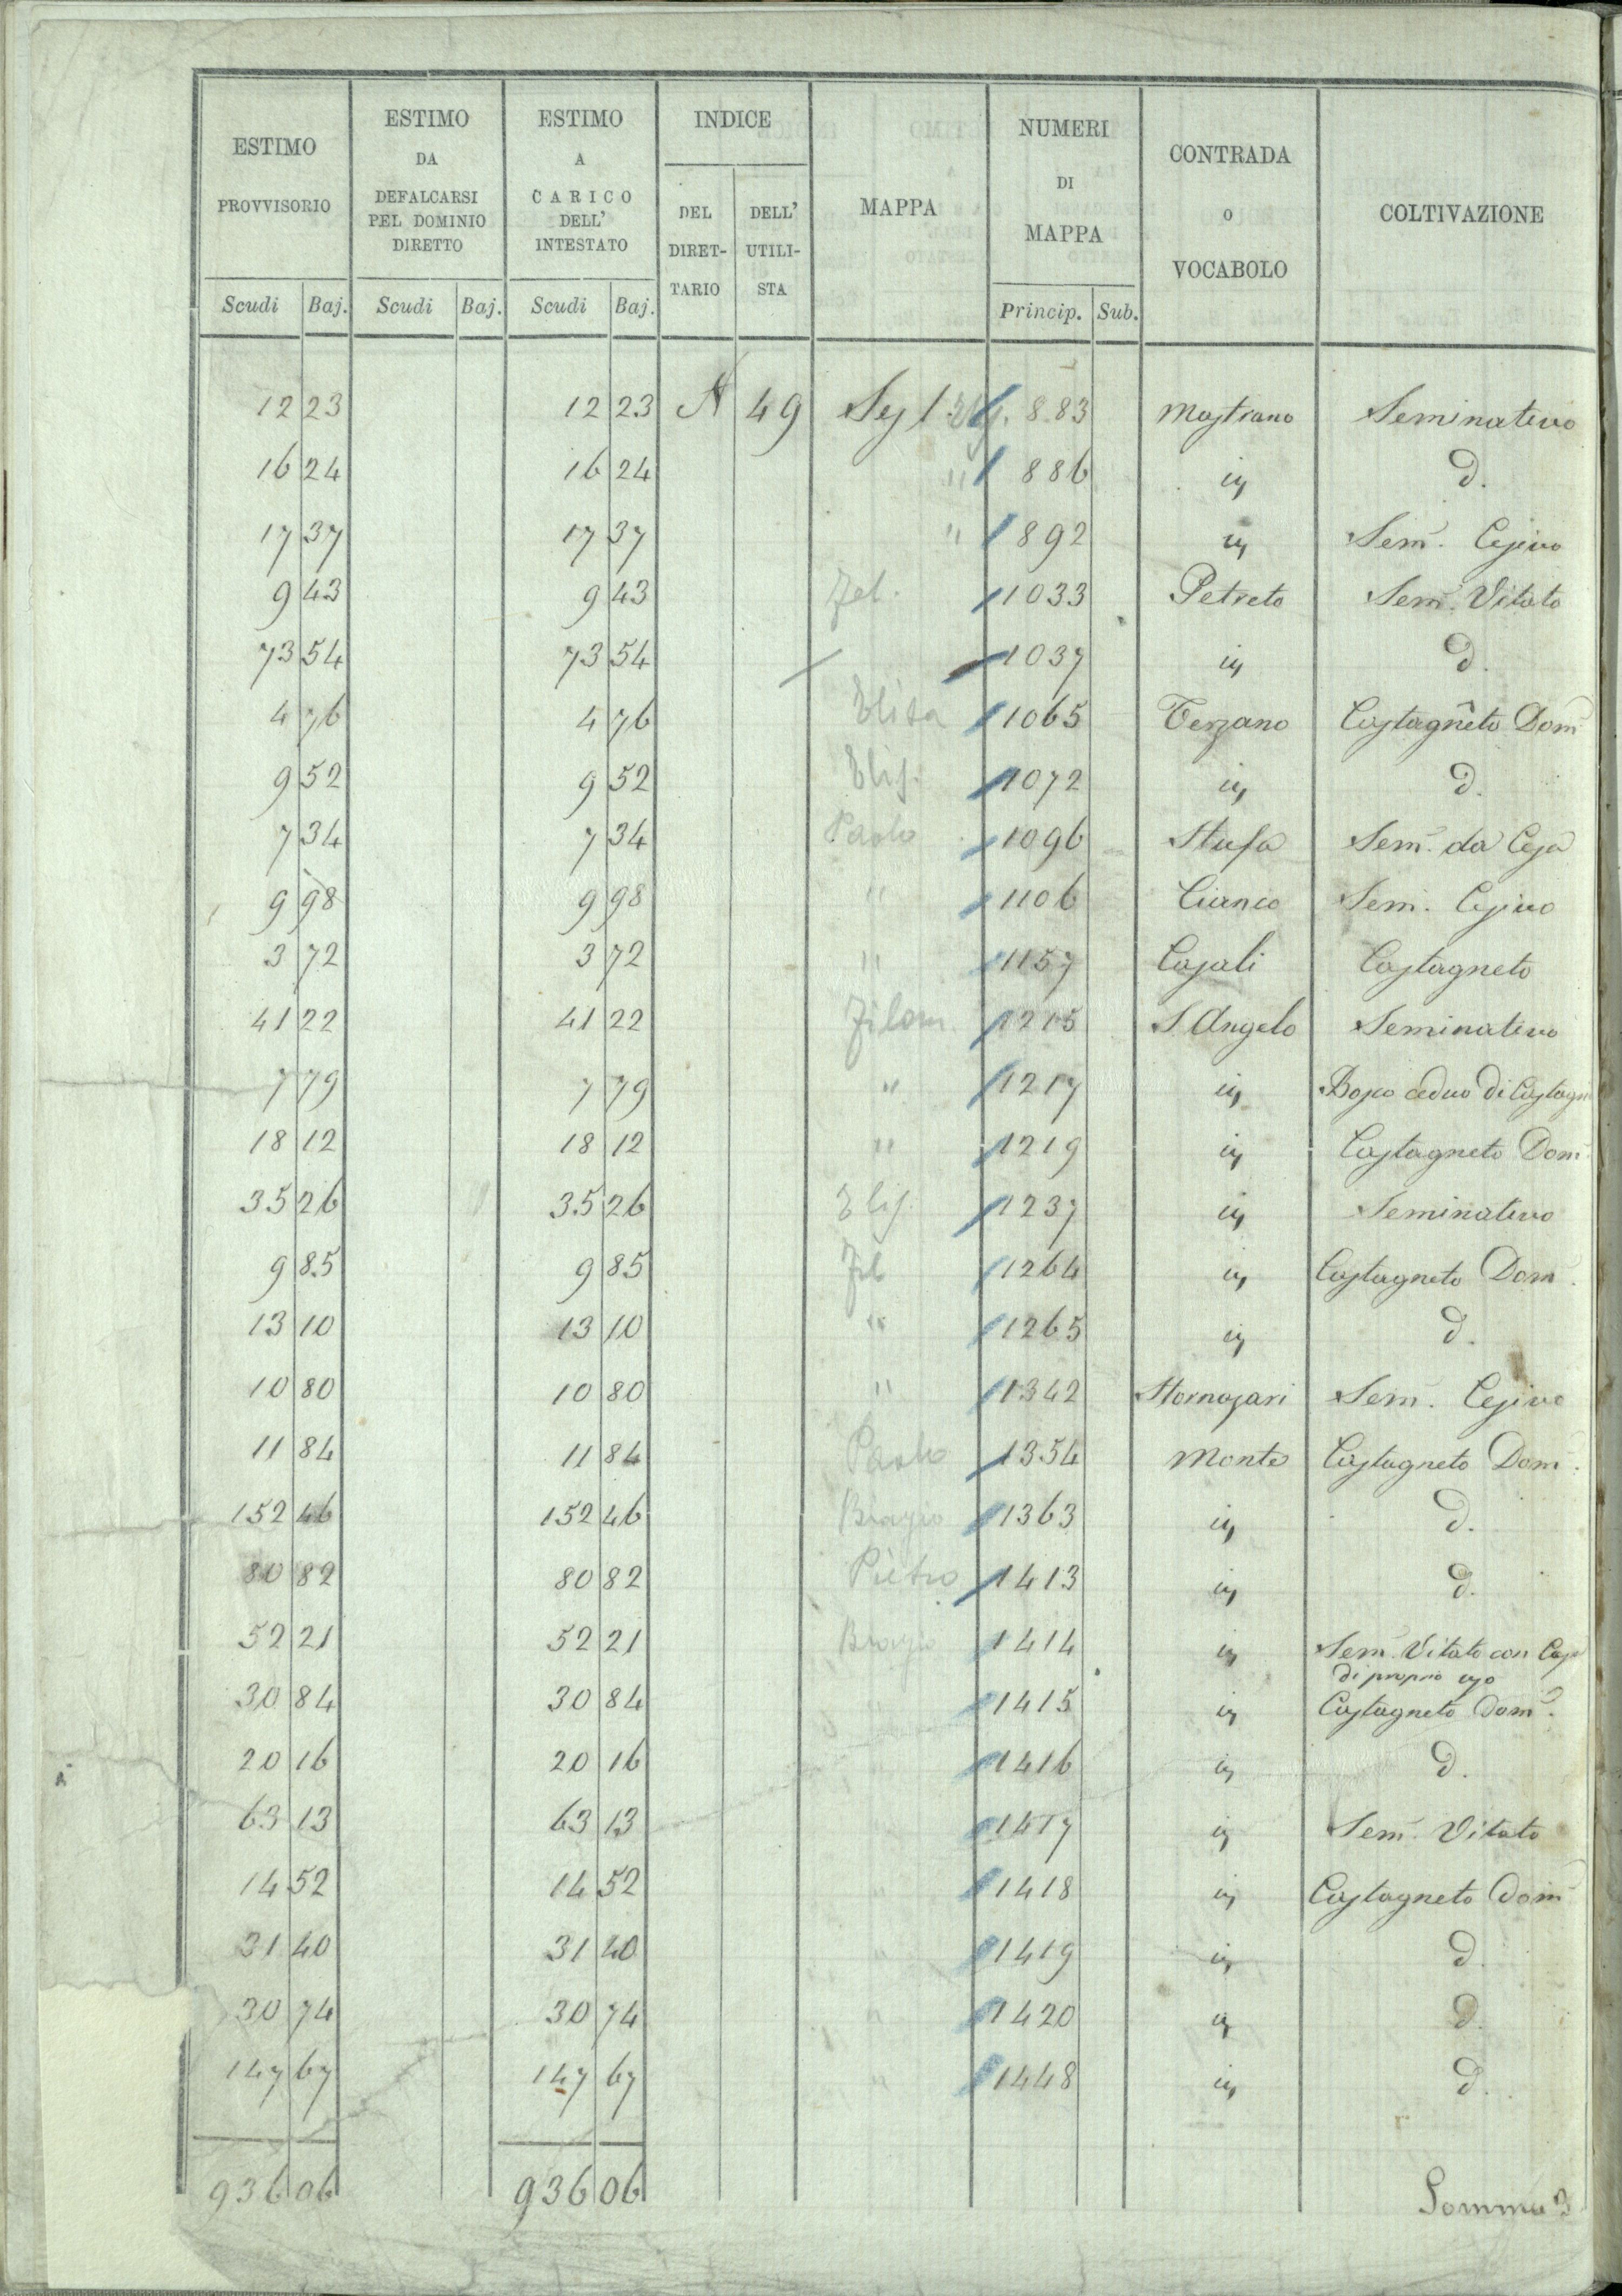 ESTIMO PROVVISORIO | ESTIMO DA DEFALCARSI PEL DOMINIO DIRETTO | ESTIMO A CARICO DELL' INTESTATO | INDICE | MAPPA | NUMERI DI MAPPA | CONTRADA O VOCABOLO | COLTIVAZIONE
DEL DIRET-TARIO | DELL' UTILI-STA
Scudi | Baj. | Scudi | Baj. | Scudi | Baj. | Princip. | Sub.
12 23 | 12 23 | N | 49 | Sez 1 | 883 | Mastrano | Seminativo
16 24 | 16 24 | " | 886 | iy | d.
17 37 | 17 37 | " | 892 | iy | Sem. Cesivo
9 43 | 9 43 | Fel. | 1033 | Petreto | Sem. Vitato
73 54 | 73 54 | 1037 | iy | d.
4 76 | 4 76 | Elisa | 1065 | Terzano | Castagneto Dom
9 52 | 9 52 | Elis. | 1072 | iy | d.
7 34 | 7 34 | Paolo | 1096 | Stufa | Sem. da Cesa
9 98 | 9 98 | " | 1106 | Cianco | Sem. Cesivo
3 72 | 3 72 | " | 1157 | Casali | Castagneto
41 22 | 41 22 | Filom | 1215 | S. Angelo | Seminativo
7 79 | 7 79 | " | 1217 | iy | Bosco ceduo di Castagn
18 12 | 18 12 | " | 1219 | iy | Castagneto Dom
35 26 | 35 26 | Elis. | 1237 | iy | Seminativo
9 85 | 9 85 | Fil | 1264 | iy | Castagneto Dom.
13 10 | 13 10 | " | 1265 | iy | d.
10 80 | 10 80 | " | 1342 | Stornazari | Sem. Cesivo
11 84 | 11 84 | Paolo | 1354 | Monte | Castagneto Dom.
152 46 | 152 46 | Biagio | 1363 | iy | d.
80 82 | 80 82 | Pietro | 1413 | iy | d.
52 21 | 52 21 | Biagio | 1414 | iy | Sem. Vitato con Casa
di proprio uso
30 84 | 30 84 | " | 1415 | iy | Castagneto Dom.
20 16 | 20 16 | " | 1416 | iy | d.
63 13 | 63 13 | 1417 | iy | Sem. Vitato
14 52 | 14 52 | " | 1418 | iy | Castagneto Dom
31 40 | 31 40 | " | 1419 | iy | d.
30 74 | 30 74 | " | 1420 | iy | d.
147 67 | 147 67 | " | 1448 | iy | d.
936 06 | 936 06 | Somma